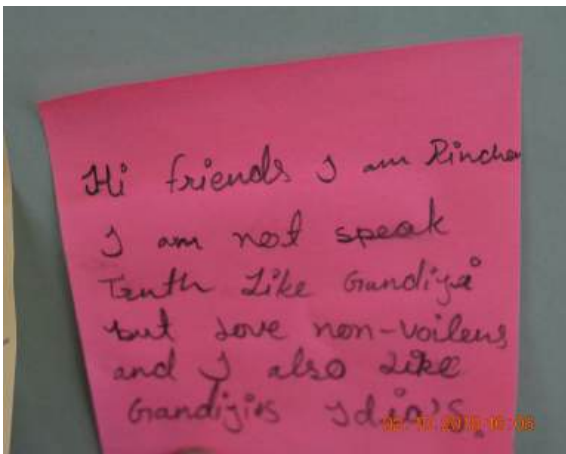 Hi friends I am Rinchen
I am not speak
Truth Like Gandiji
but Love non-voilens
and I also Like
Gandijies Idia's.